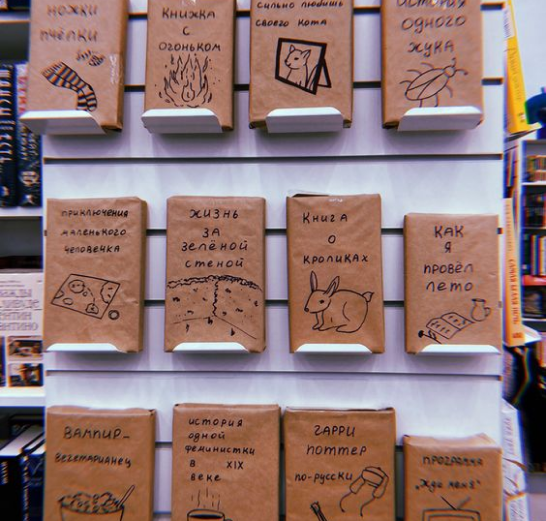 НОЖКИ
ПЧЁЛКИ
КНИЖКА
С
ОГОНЬКОМ
СИЛЬНО ЛЮБИШЬ
СВОЕГО КОТА
ИСТОРИЯ
ОДНОГО
ЖУКА
ПРИКЛЮЧЕНИЯ
МАЛЕНЬКОГО
ЧЕЛОВЕЧКА
ЖИЗНЬ
ЗА
ЗЕЛЁНОЙ
СТЕНОЙ
КНИГА
О
КРОЛИКАХ
КАК
Я
ПРОВЁЛ
ЛЕТО
ВАМПИР-
ВЕГЕТАРИАНЕЦ
ИСТОРИЯ
ОДНОЙ
ФЕМИНИСТКИ
В XIX
ВЕКЕ
ГАРРИ
ПОТТЕР
ПО-РУССКИ
ПРОГРАММА
„ЖДИ МЕНЯ"